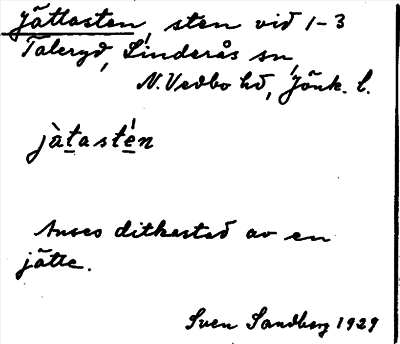 Jättasten, sten vid 1-3
Taleryd, Linderås sn,
N. Vedbo hd, Jönk. l.
jàtastén
Anses ditkastad av en
jätte.
Sven Sandberg 1929